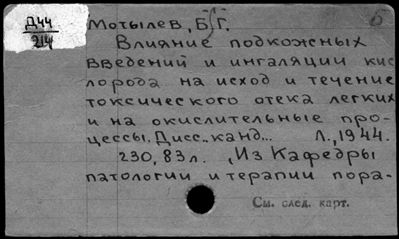 Д44
214
Мотылев, Б. Г.
Влияние подкожных
введений и ингаляции кис
лорода на исход и течение
токсического отека легких
и на окислительные про-
цессы. Дисс.. канд... Л., 1944.
230, 83 л. , Из Кафедры
патологии и терапии пора-
См. след. карт.